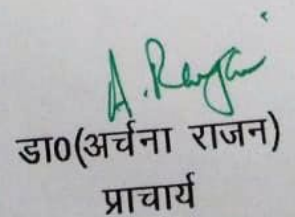 A. Rajan
डा0(अर्चना राजन)
प्राचार्य